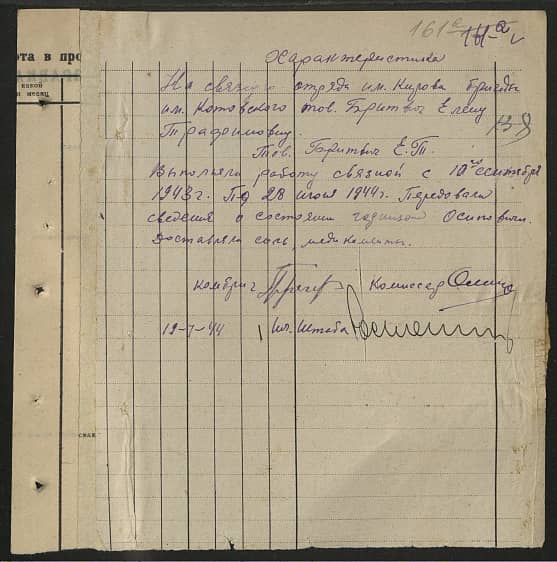 161а
та в про
какой
и месяц
Характеристика
На связную отряда им. Кирова бригады
им. Котовского тов. Бритвич Елену
Трафимовну.
Тов. Бритвич Е. Т.
Выполняла работу связной с 10го сентября
1943 г. По 28 июня 1944 г. Передовала
сведения о состоянии Осиповичи.
Доставляла соль, медикаменты.
Комбриг Комиссар
19-7-44 Нач. Штаба